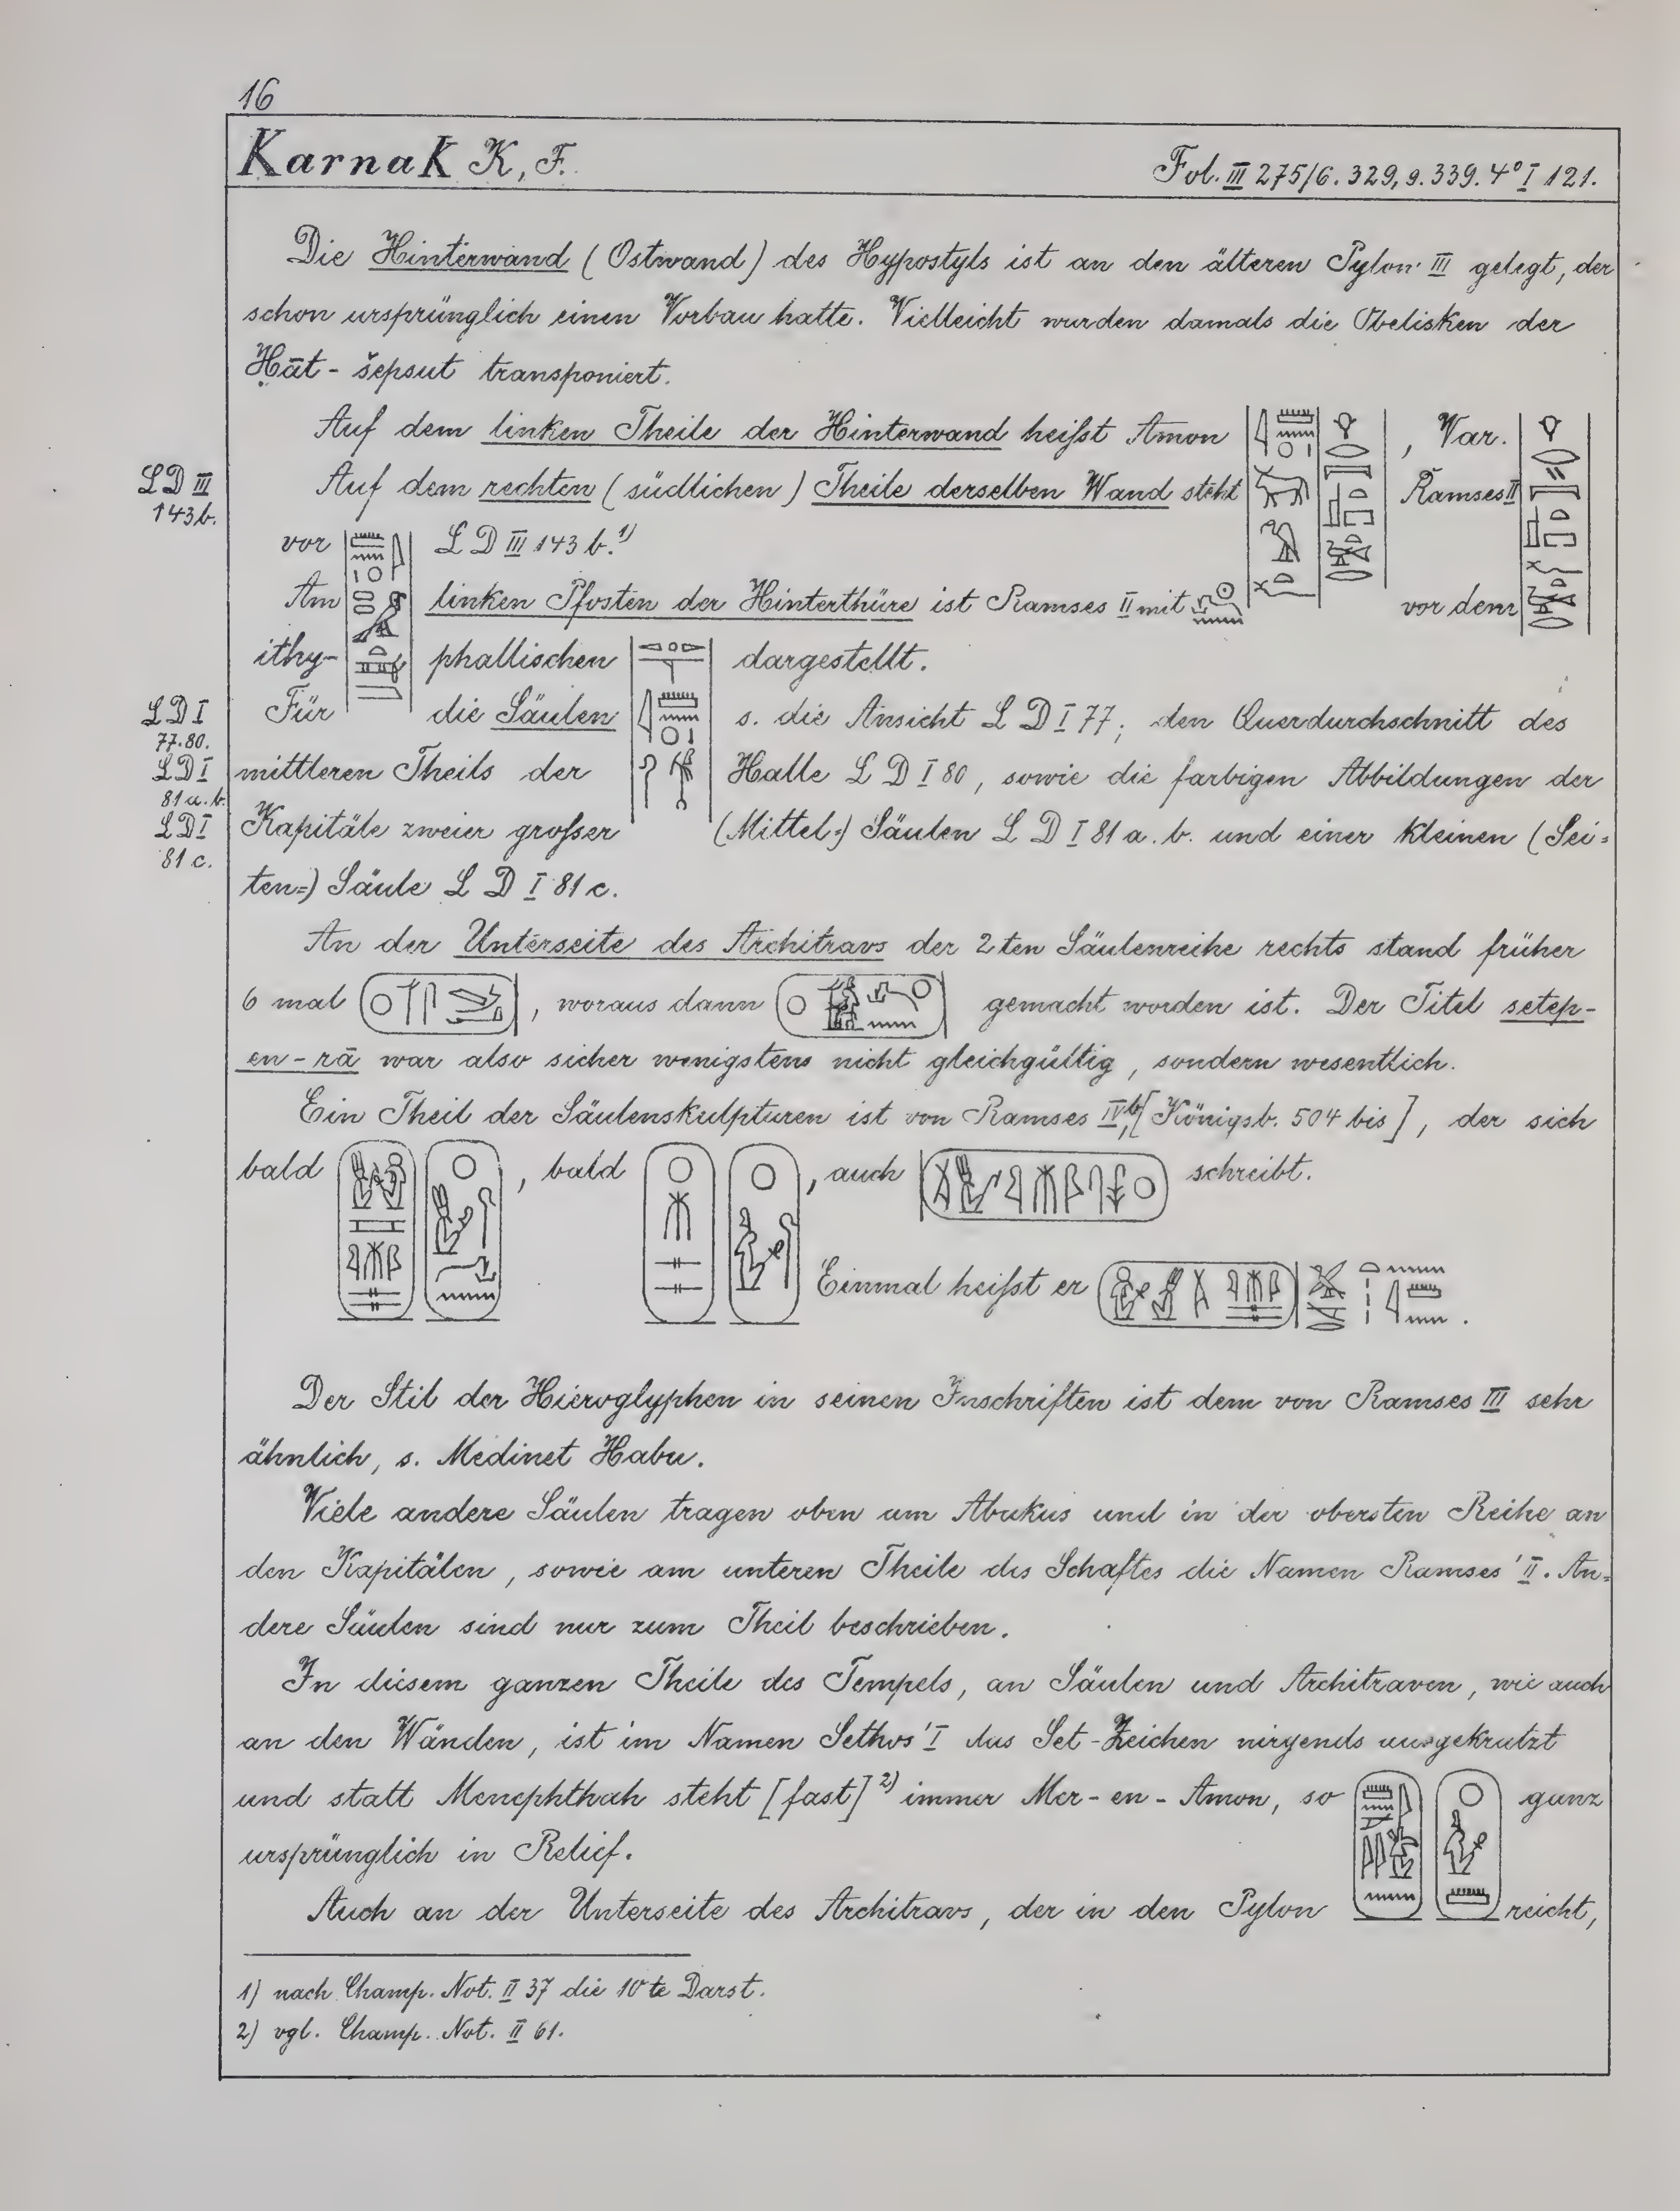 16
Karnak K, F.
Fol. III 275/6. 329, 9. 339. 4° I 121.
Die Hinterwand (Ostwand) des Hypostyls ist an den älteren Pylon III gelegt, der
schon ursprünglich einen Vorbau hatte. Vielleicht wurden damals die Obelisken der
Ḥāt-šepsut transponiert.
Auf dem linken Theile der Hinterwand heißt Amon , Var.
LD III
143b.
Auf dem rechten (südlichen) Theile derselben Wand steht Ramses II
vor LD III 143 b.1)
Am linken Pfosten der Hinterthüre ist Ramses II mit vor dem
ithy- phallischen dargestellt.
LD I
77.80.
Für die Säulen s. die Ansicht LD I 77; den Querdurchschnitt des
LD I
81 a.b.
mittleren Theils der Halle LD I 80, sowie die farbigen Abbildungen der
LD I
81 c.
Kapitäle zweier großer (Mittel=) Säulen LD I 81 a. b. und einer kleinen (Sei=
ten=) Säule LD I 81 c.
An der Unterseite des Architravs der 2ten Säulenreihe rechts stand früher
6 mal , woraus dann gemacht worden ist. Der Titel setep-
en-rā war also sicher wenigstens nicht gleichgültig, sondern wesentlich.
Ein Theil der Säulenskulpturen ist von Ramses IV, b[Königsb. 504 bis], der sich
bald , bald , auch schreibt.
Einmal heißt er .
Der Stil der Hieroglyphen in seinen Inschriften ist dem von Ramses III sehr
ähnlich, s. Medinet Habu.
Viele andere Säulen tragen oben am Abakus und in der obersten Reihe an
den Kapitälen, sowie am unteren Theile des Schaftes die Namen Ramses' II. An=
dere Säulen sind nur zum Theil beschrieben.
In diesem ganzen Theile des Tempels, an Säulen und Architraven, wie auch
an den Wänden, ist im Namen Sethos' I das Set-Zeichen nirgends ausgekratzt
und statt Menephthah steht [fast]2) immer Mer-en-Amon, so ganz
ursprünglich in Relief.
Auch an der Unterseite des Architravs, der in den Pylon reicht,
1) nach Champ. Not. II 37 die 10te Darst.
2) vgl. Champ. Not. II 61.